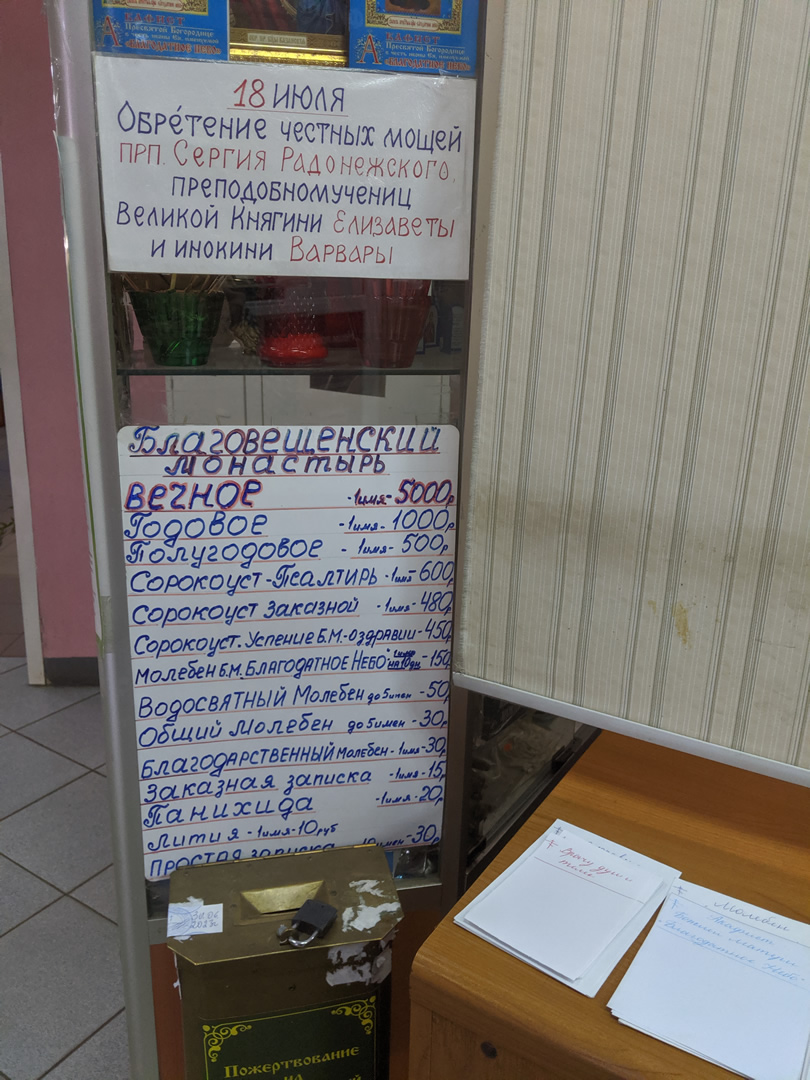 АКАФИСТ
Пресвятой Богородице
в честь иконы Ея, именуемой
«БЛАГОДАТНОЕ НЕБО»
АКАФИСТ
Пресвятой Богородице
в честь иконы Ея, именуемой
«БЛАГОДАТНОЕ НЕБО»
18 июля
Обре́тение честных мощей
прп. Сергия Радонежского,
преподобномучениц
Великой Княгини Елизаветы
и инокини Варвары
Благовещенский
монастырь
Вечное -1имя- 5000р
Годовое -1имя- 1000р
Полугодовое -1имя- 500р
Сорокоуст-Псалтирь -1имя- 600р
Сорокоуст Заказной -1имя- 480р
Сорокоуст. Успение Б.М.-о здравии - 450р
Молебен Б.М. „Благодатное Небо" на 10 дн. - 150р
Водосвятный Молебен до 5 имен - 50р
Общий Молебен до 5 имен - 30р
Благодарственный Молебен - 1имя- 30р
Заказная записка -1имя- 15р
Панихида -1имя- 20р
Лития -1имя- 10 руб
Простая записка 10 имен - 30р
30.06
Пожертвование
на
Врачу душ и
телес
Молебен
Акафист
Божией матери
Благодатное Небо